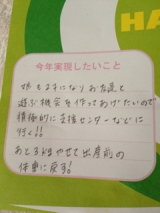 HA
今年実現したいこと
娘も2才になりお友達と
遊ぶ機会を作ってあげたいので
積極的に支援センターなどに
行く!!
あと3kgやせて出産前の
体重に戻す!